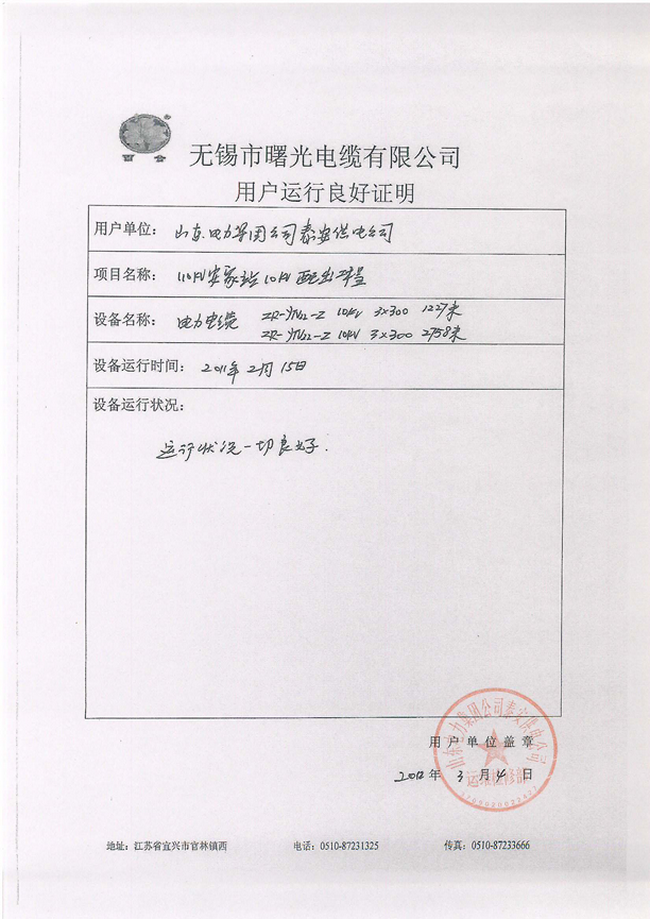 百合
®
无锡市曙光电缆有限公司
用户运行良好证明
用户单位: 山东电力集团公司泰安供电公司
项目名称: 110kV 10kV 配出工程
设备名称: 电力电缆 ZR-YJV22-Z 10kV 3×300 1227米
ZR-YJV22-Z 10kV 3×300 2758米
设备运行时间: 2011年2月15日
设备运行状况:
运行状况一切良好.
用户单位盖章
年 3月4日
山东电力集团公司泰安供电公司
运维检修部
地址: 江苏省宜兴市官林镇西 电话: 0510-87231325 传真: 0510-87233666